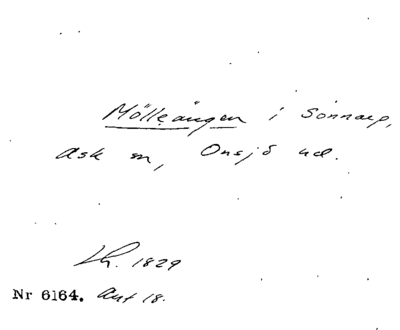 Mölleängen i Sönnarp,
Ask sn, Onsjö hd.
Lh. 1829
Nr 6164. Ant 18.